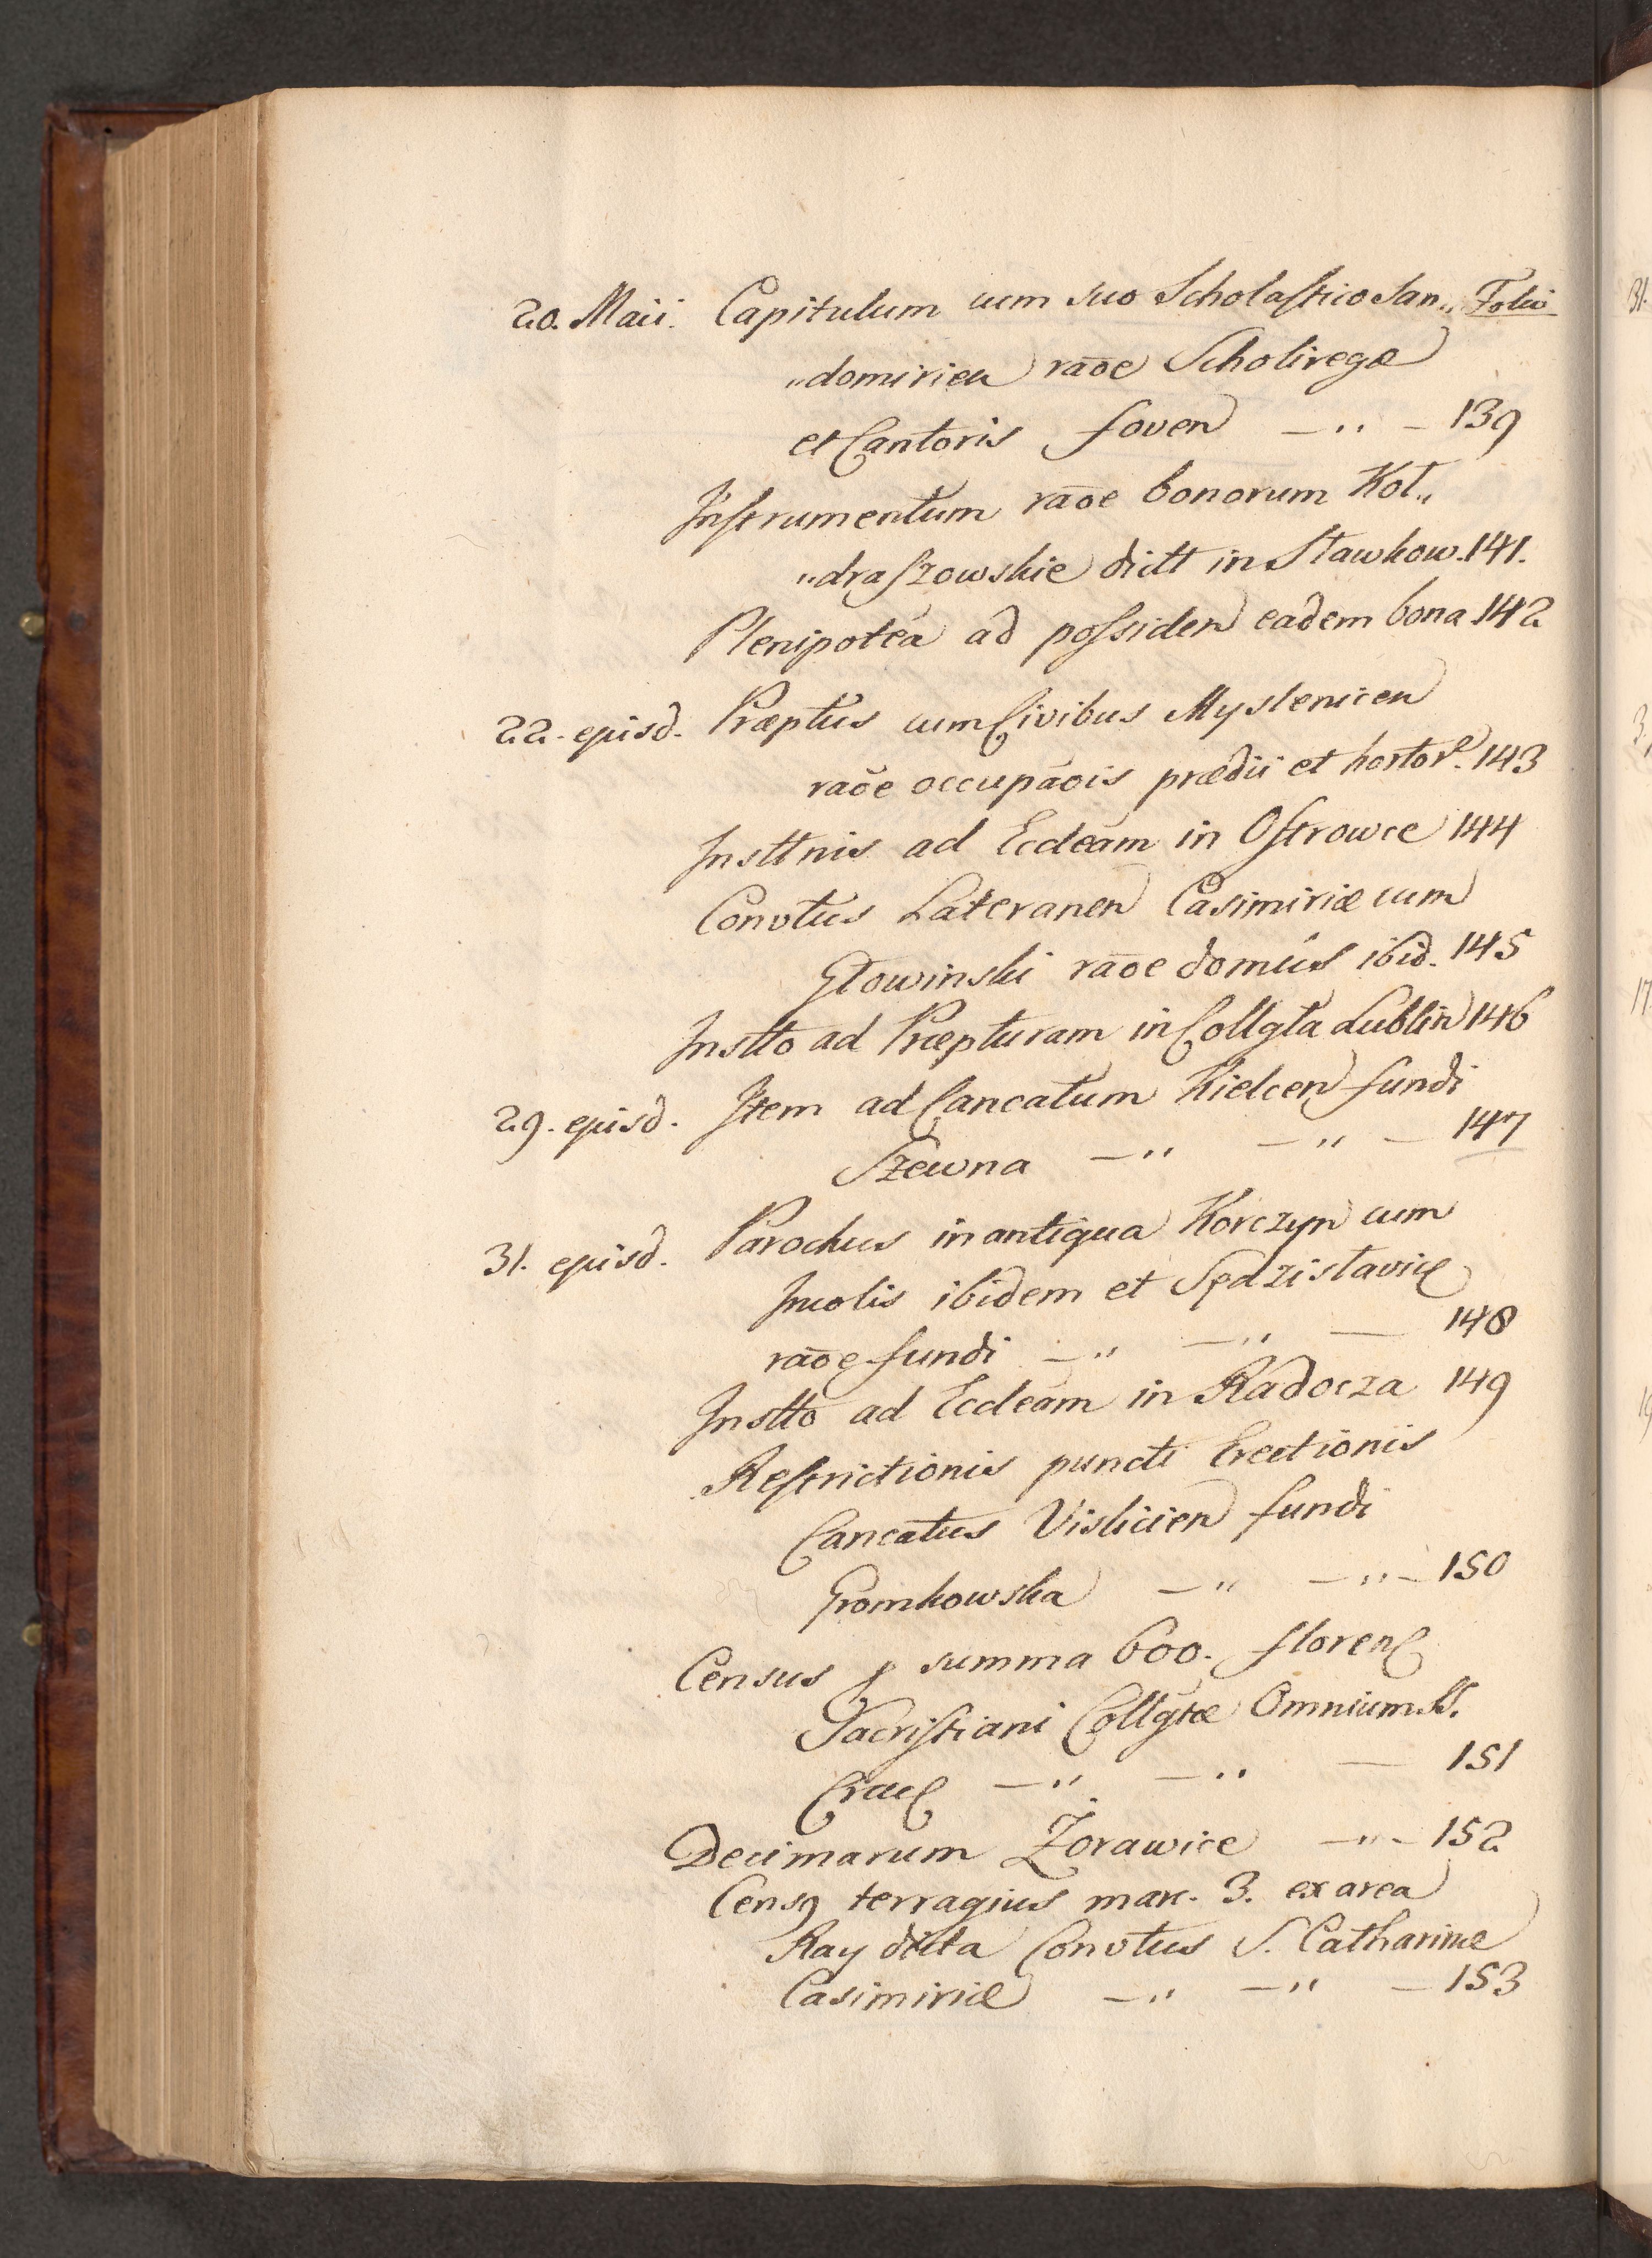 20. Maii. Capitulum cum suo Scholastico San„ Folio
„domirien raõe Scholiregæ
et Cantoris foven — „ — 139
Instrumentum raõe bonorum Kot„
„draszowskie dictt in Sławkow. 141.
Plenipotẽa ad possiden eadem bona 142
22. ejusd. Præptus cum Civibus Myslenicen
raõe occupaõis prædii et hortor. 143
Insttnis ad Eccleãm in Ostrowce 144
Convtus Lateranen Casimiriæ cum
Głowinski raõe domûs ibid. 145
Instto ad Præpturam in Collgta Lublin 146
29. ejusd. Item ad Cancatum Kielcen fundi
Szewna — „ — „ — 147
31. ejusd. Parochus in antiqua Korczyn cum
Incolis ibidem et Sędzisłavic
raõe fundi — „ — „ — 148
Instto ad Eccleãm in Radocza 149
Restrictionis puncti Erectionis
Cancatus Vislicien fundi
Gromkowska — „ — „ — 150
Census p summa 600. floren
Sacristiani Collgtæ Omnium SS.
Crac — „ — „ — 151
Decimarum Żorawice — „ — 152
Censq terragius marc. 3. ex area
Ray dicta Convtus S. Catharinæ
Casimiriæ — „ — „ — 153